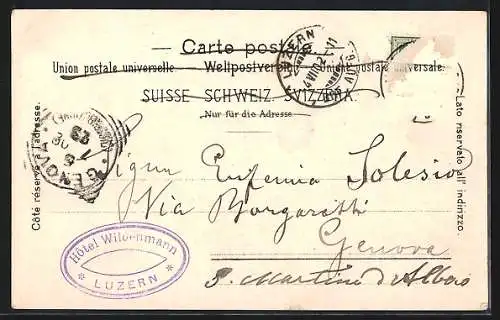 Carte postale.
Union postale universelle. Weltpostverein. Unione postale universale.
SUISSE. SCHWEIZ. SVIZZERA.
Nur für die Adresse
Côte réservé à l'adresse.
Lato riservato all' indirizzo.
LUZERN
GENOVA
Signa Eugenia Solesio
Via Borgoratti
Genova
S. Martino d'Albaro
Hôtel Wildenmann
* LUZERN *